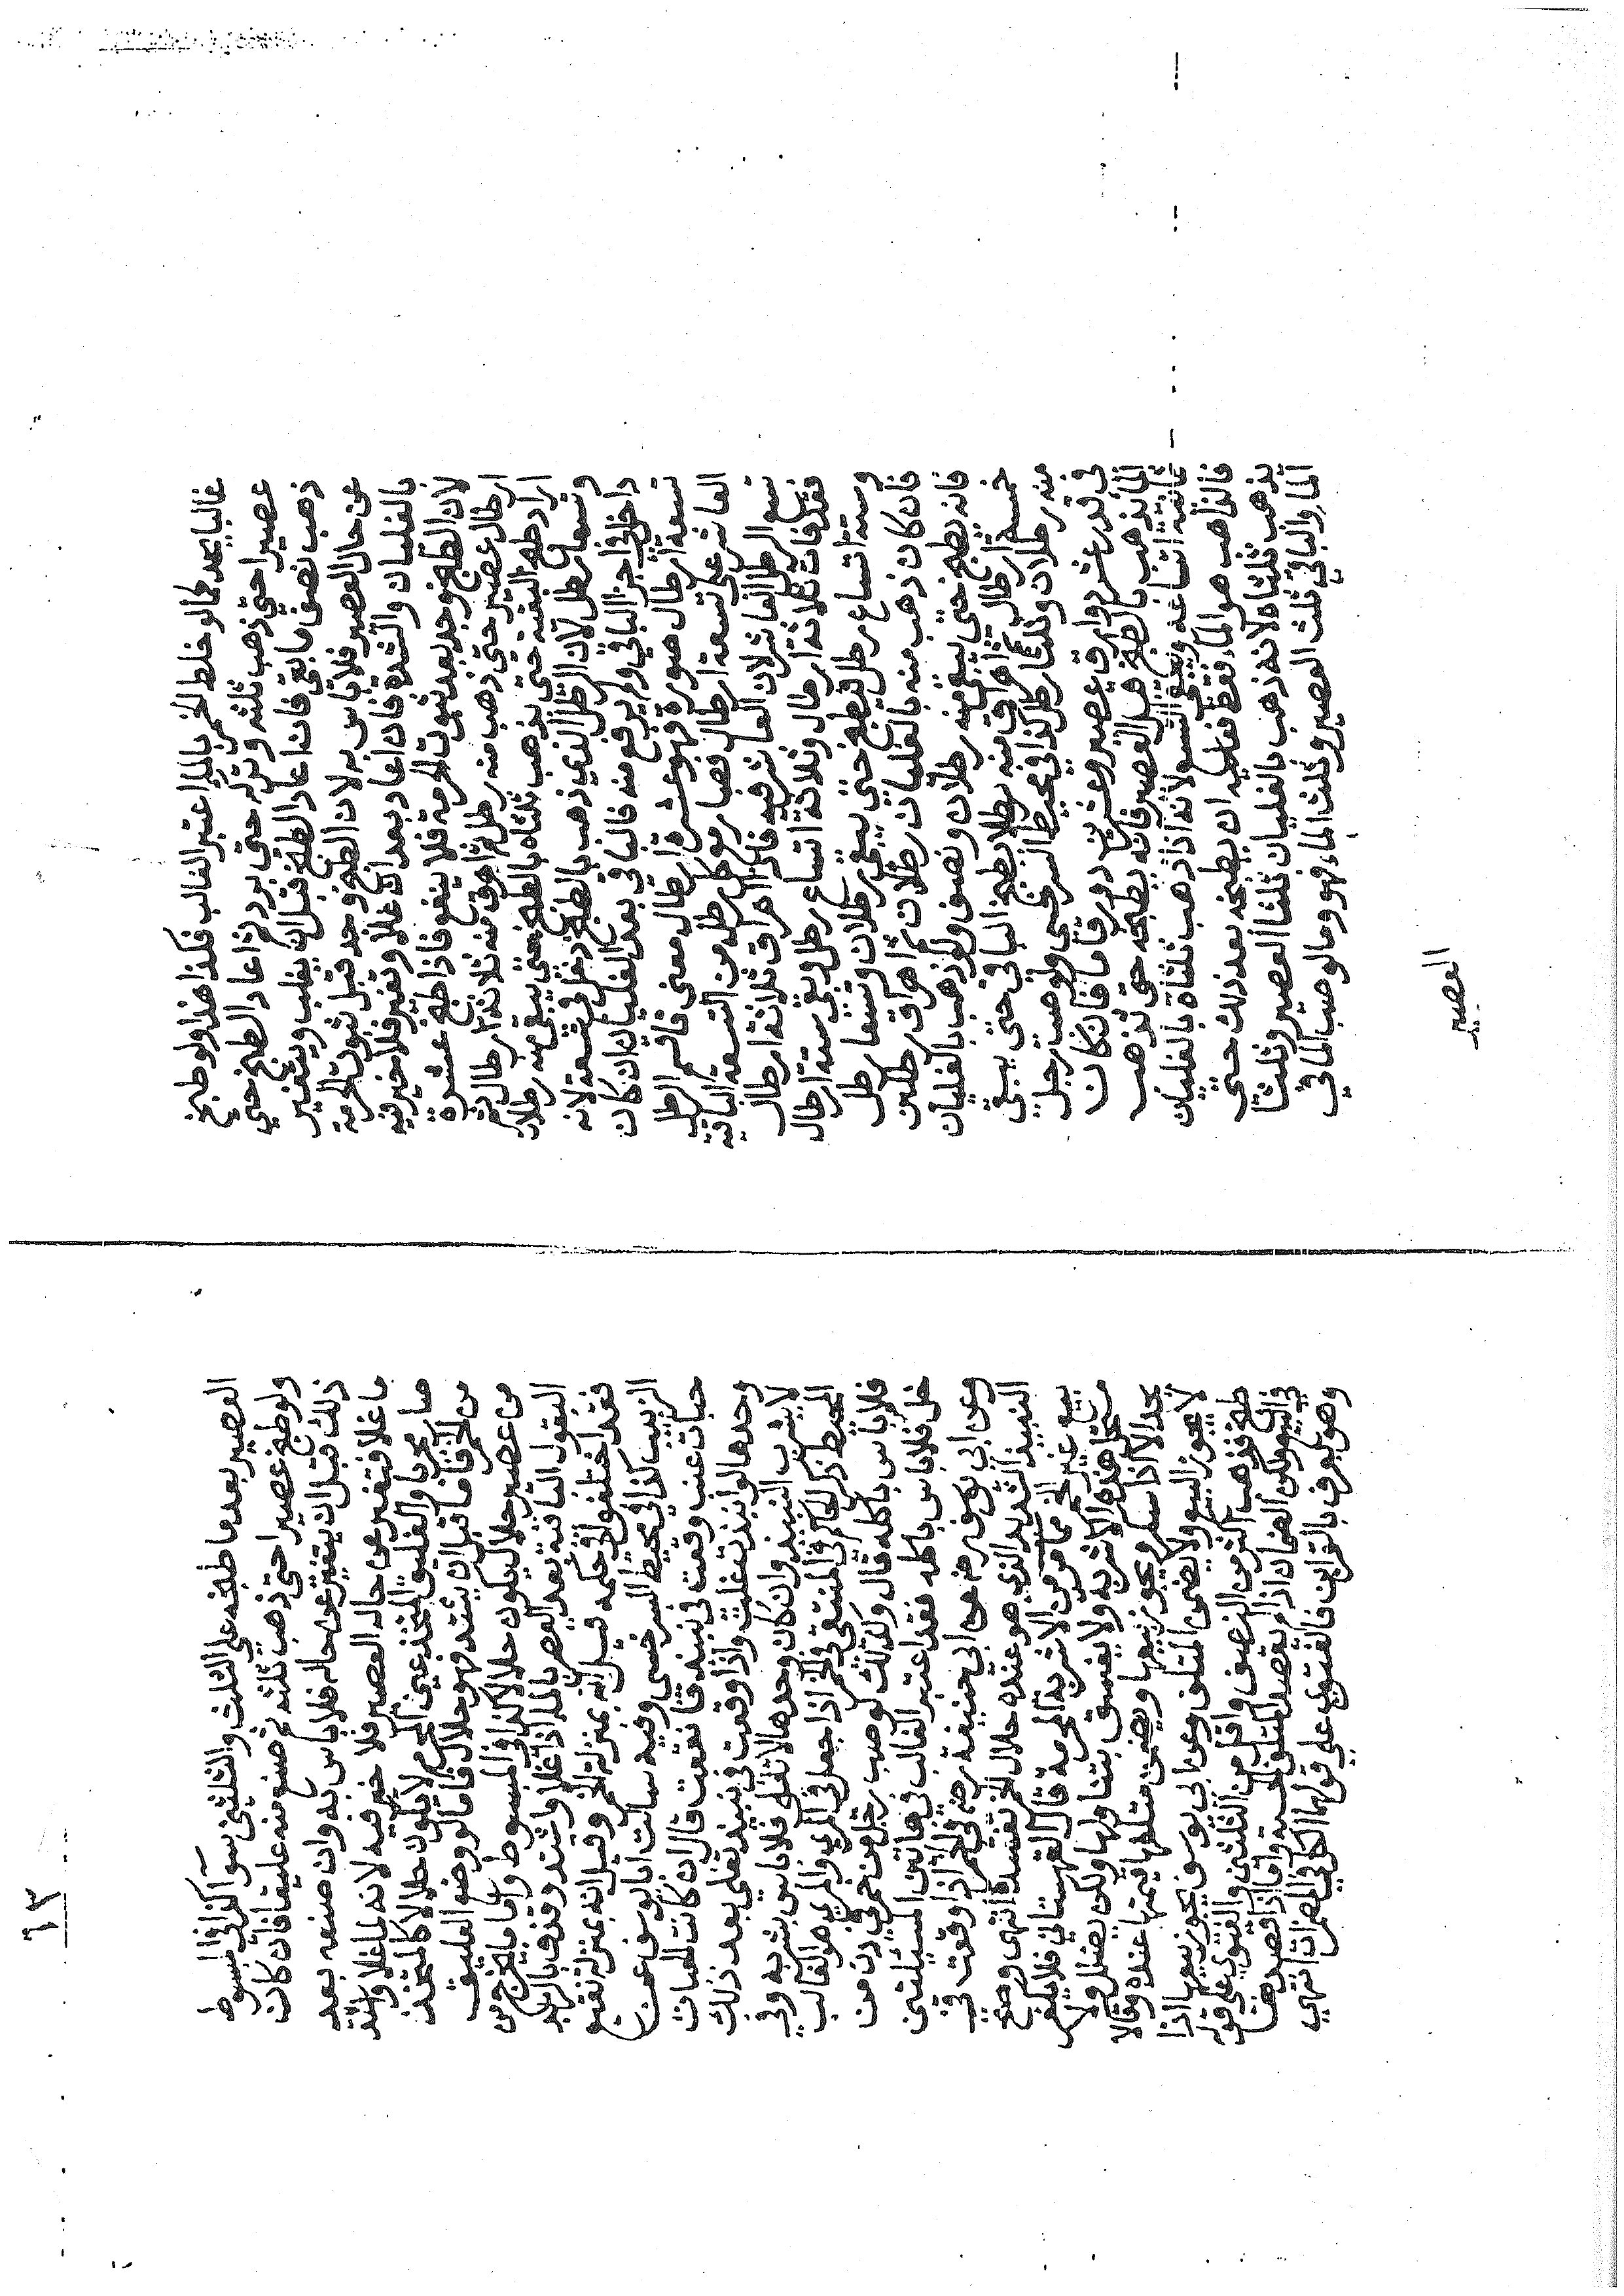 غالبا يحد كما لو خلط الخمر بالماء اعتبر الغالب فكذا هذا ولو طبخ
عصيرا حتى ذهب ثلثه وتركه حتى برد ثم اعاد الطبخ حتى
ذهب نصف ما بقي فان اعاد الطبخ قبل ان يغلب ويتغير
عن حال العصير فلا باس به لان الطبخ وجد قبل ثبوت الحرمة
بالغليان والشدة فان اعاد بعد ان غلا وتغير فلا خير فيه
لان الطبخ وجد بعد ثبوت الحرمة فلا ينفع فاذا طبخ عشرة
ارطال عصير حتى ذهب منه رطل ثم اهرق منه ثلاثة ارطال ثم
اراد طبخ البقية حتى يذهب ثلثاه بالطبخ حتى يبقى منه رطلان
وتسعا رطل لان الرطل الذي ذهب بالطبخ دخل في تسعة لانه
داخل في اجزا الباقي ولم يرفع منه فالباقي بعد الغليان ان كان
تسعة ارطال صورة فهو عشرة ارطال معنى فاقسم الرطل
العاشر على تسعة ارطال فصار مع كل رطل من التسعة الباقية
تسع الرطل العاشر لان العاشر فيه فاذا اهراق ثلاثة ارطال
فقد فات ثلاثة ارطال وثلاثة اتساع رطل وبقي ستة ارطال
وستة اتساع رطل فيطبخ حتى يبقى رطلان وتسعا رطل
فان كان ذهب منه بالغليان رطلان ثم اهراق رطلين
فانه يطبخ حتى يبقى منه رطلان ونصف ولو ذهب بالغليان
خمسة ارطال ثم اهراق منه رطلا يطبخ الباقي حتى يبقى
منه رطلان وثلثا رطل كذا في محيط السرخسي ولو صب رجل
في قدر عشرة دوارق عصير وعشرين دورقا ماء فان كان
الماء يذهب بالطبخ قبل العصير فانه يطبخه حتى يذهب
ثمانية اتساعه ويبقى التسع لانه اذا ذهب ثلثاه بالغليان
فالذاهب هو الماء فقط فعليه ان يطبخه بعد ذلك حتى
يذهب ثلثاه لانه ذهب بالغليان ثلثا العصير وثلثا
الماء والباقي ثلث العصير وثلث الماء فهو وما لو صب الماء في
العصير
٦٣
العصير بعد ما طبخه على الثلث والثلثين سواء كذا في المبسوط
ولو طبخ عصيرا حتى ذهب ثلثه ثم صنع منه عليقا فان كان
ذلك قبل ان يتغير عن حاله فلا باس به وان صنعه بعد
ما غلا فتغير عن حال العصير فلا خير فيه لانه لما غلا واشتد
صار محرما والعليق المتخذ عين المحرم لا يكون حلالا كالمتخذ
من الخمر فاما قبل ان يشتد فهو حلال فاما لو وضع العليق
من عصير حلال يكون حلالا كذا في المبسوط واما ما يخرج من
التفل الباقية بعد العصر بالماء اذا غلا واشتد وقذف بالزبد
فقد اختلفوا في حكمه قيل انه بمنزلة الخمر وقيل انه بمنزلة نقيع
الزبيب كذا في محيط السرخسي وفيه سالت ابا يوسف عن
حبات عنب وقعت في نبيذ فانتقعت قال ان كانت الحبات
وحدها لو انبذت غلت واذا وقعت في نبيذ تغلي بعد ذلك
لا يشرب النبيذ وان كان وحدها لا تغلي فلا باس بشربه وفي
المحيط ذكر الحاكم في المنتقى في الخمر اذا جعل في المري والمري هو الغالب
فلا باس باكله قال وكذلك لو صب رجل من خمر في دن من
خل فلا باس باكله فقد اعتبر الغالب في هاتين المسئلتين
وعن ابي يوسف رح عن ابي حنيفة رض في الخمر اذا وقعت في
النبيذ الشديد الذي هو عنده حلال الخمر تفسده انتهى وصح
بيع غير الخمر مما مر من الاشربة المحرمة قال القهستاني فلا يكفر
مستحل هذه الاشربة ولا يفسق بتناولها ولكن يضلل ولا
يحد الا اذا سكر ويجوز بيعها ويضمن متلفها قيمتها عنده وقالا
لا يجوز البيع ولا يضمن المتلف وعن ابي يوسف يجوز بيعها اذا
طبخ فذهب اكثر من النصف واقل من الثلثين والفتوى على قوله
في البيع ولكن الضمان اذا لم يقصد المتلف الحسبة واما اذا قصدها
وهو يعرف بالقراين فالفتوى على قولهما كما في المضمرات انتهي